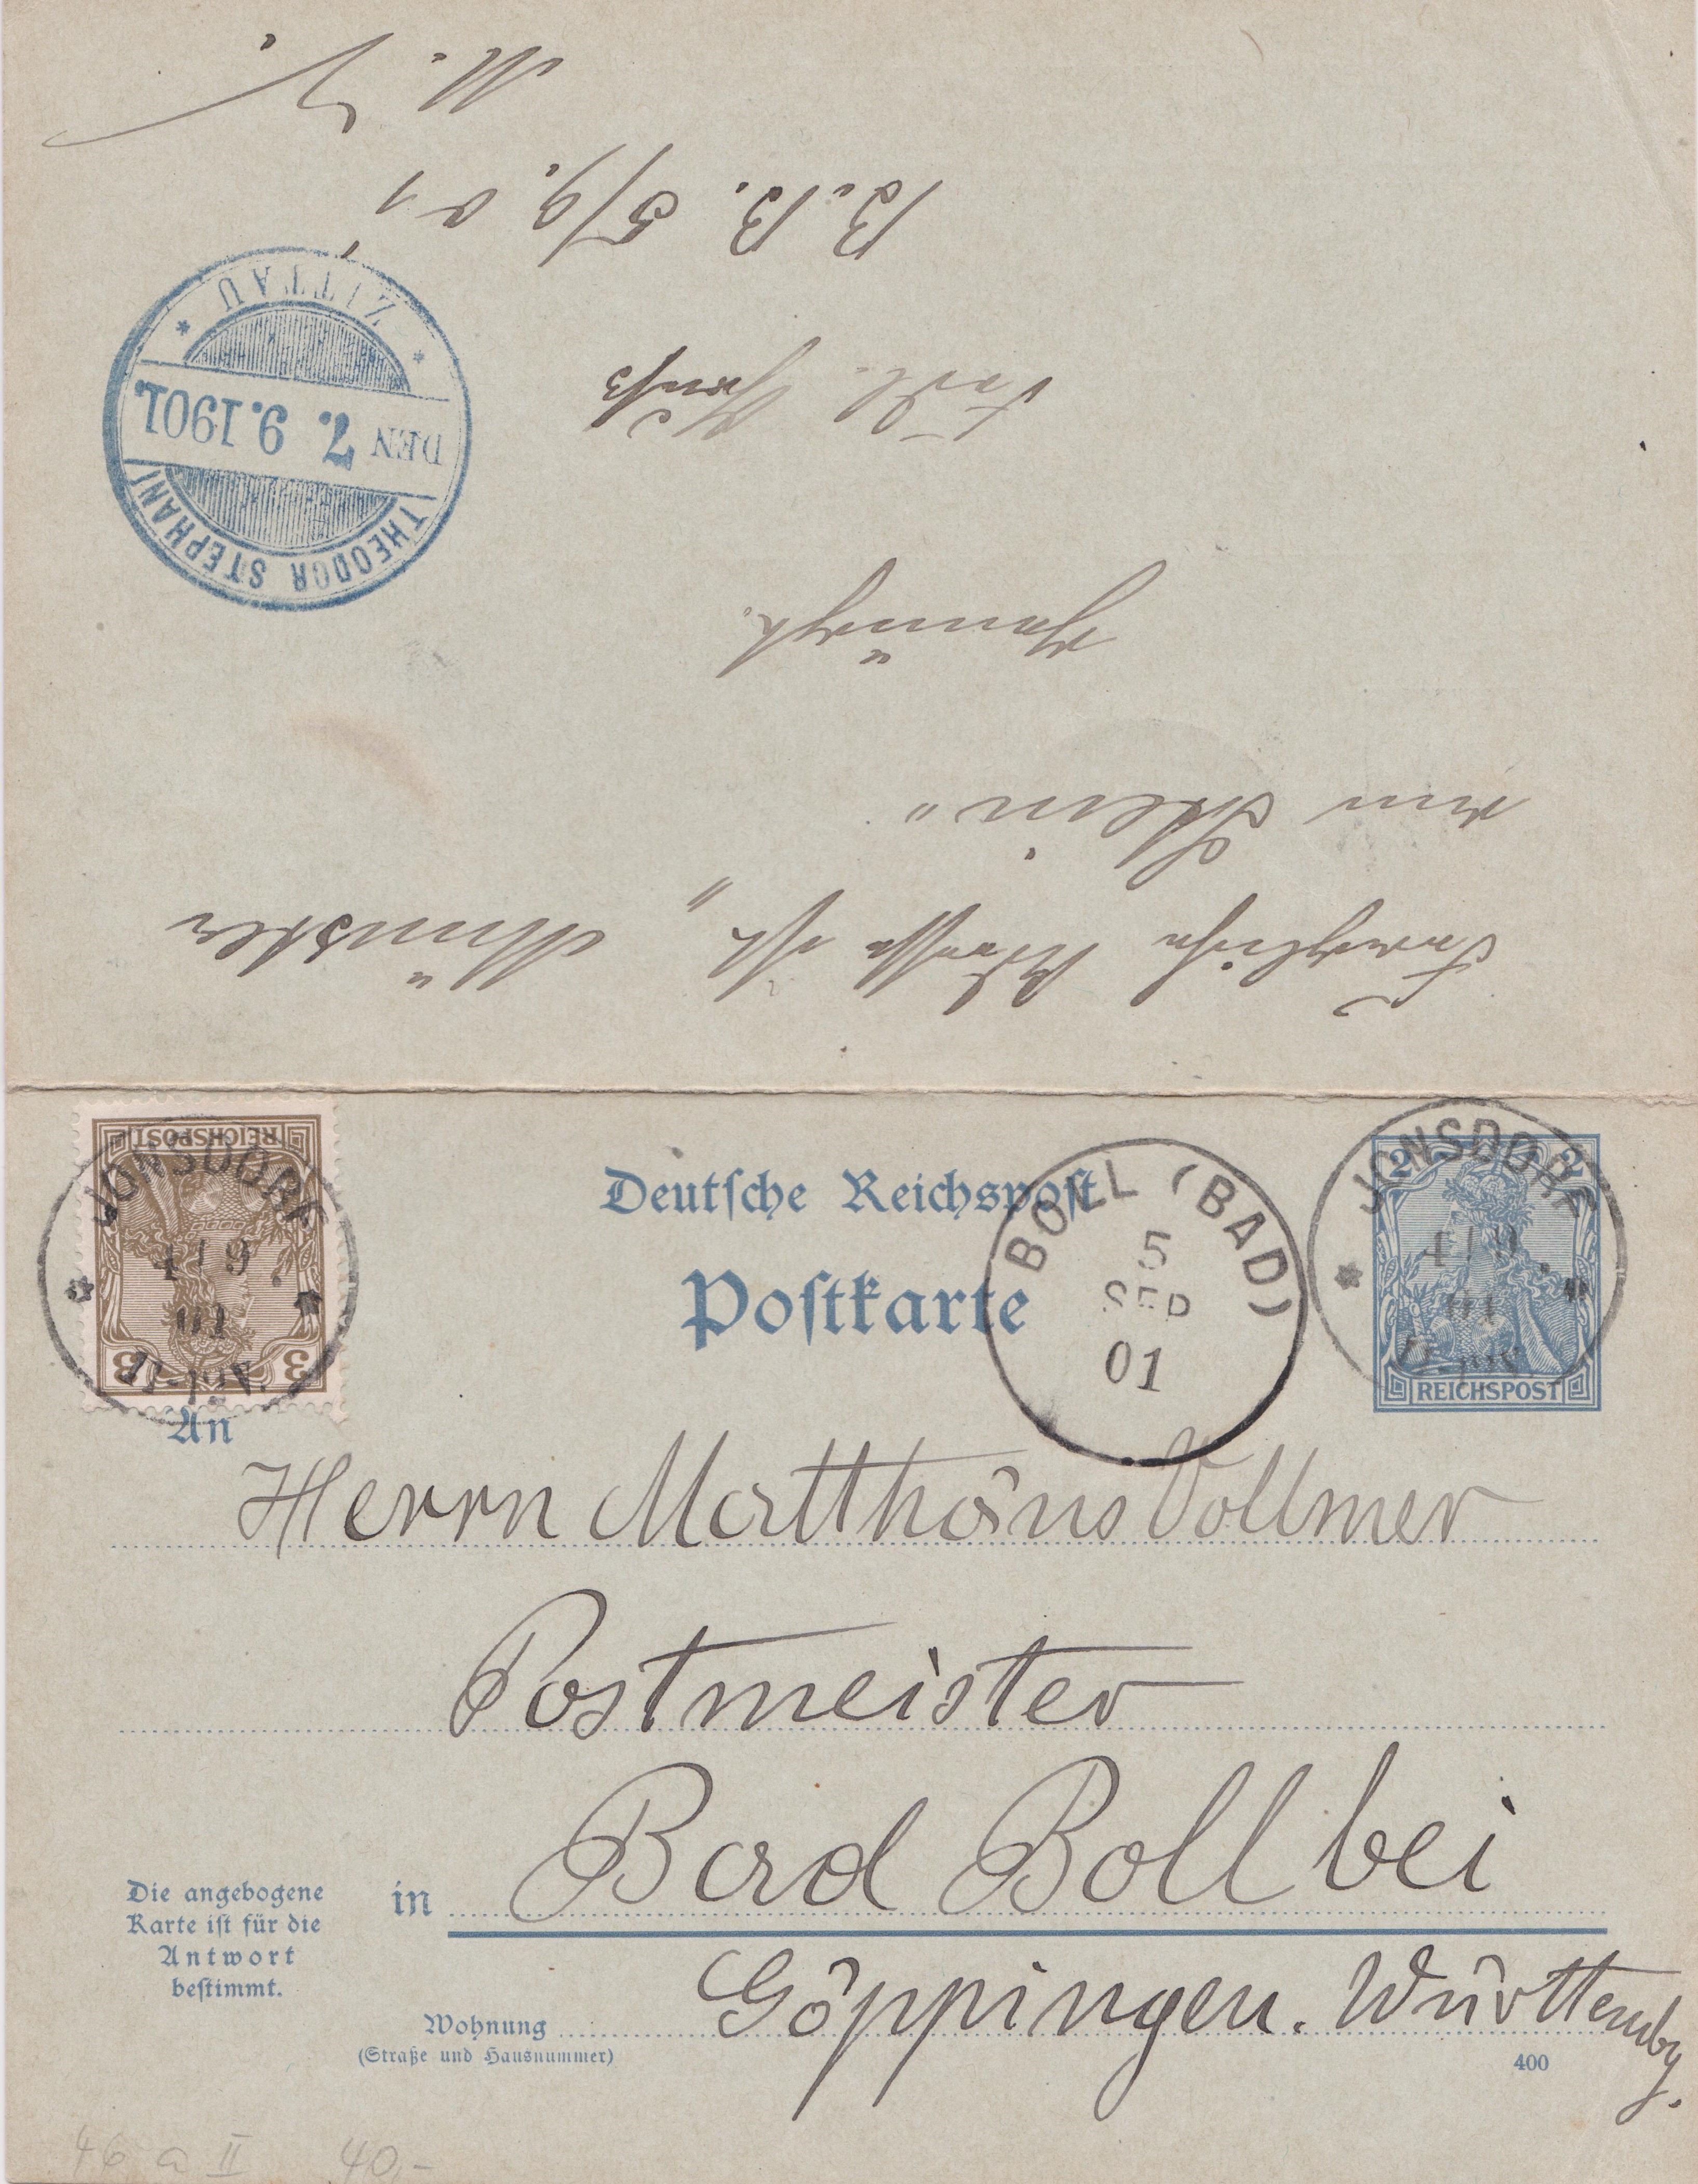 Fragliche Adresse ist „Münster
am Stein“.
M. V.
B. B. 5/9. 01
THEODOR STEPHANI
DEN 7. 9. 1901.
* ZITTAU *
REICHSPOST
3 3
JONSDORF
4/9
01
Deutsche Reichspost
Postkarte
BOLL (BAD)
5
SEP
01
2 2
REICHSPOST
JONSDORF
4/9
01
An
Herrn Matthäus Vollmer
Postmeister
in Bad Boll bei
Göppingen. Württembg.
Die angebogene
Karte ist für die
Antwort
bestimmt.
Wohnung
(Straße und Hausnummer)
400
46 a II 40,-